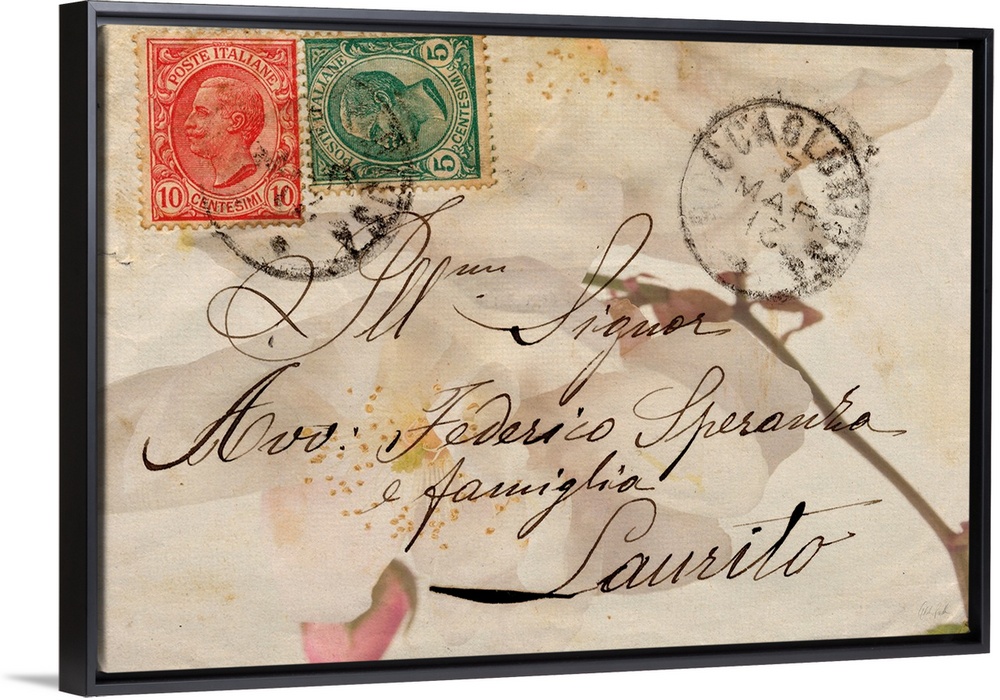 POSTE ITALIANE
10 CENTESIMI 10
POSTE ITALIANE
5 CENTESIMI 5
MAR
Ill mo Signor
Avv: Federico Speranza
e famiglia
Laurito